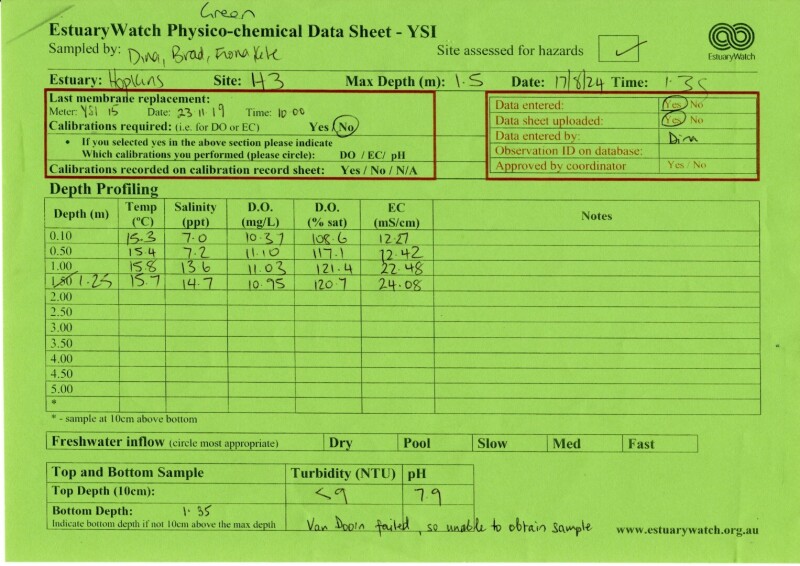 Green
EstuaryWatch Physico-chemical Data Sheet - YSI
Sampled by: Dina, Brad, Fiona Kate
Site assessed for hazards ✓
EstuaryWatch
Estuary: Hopkins Site: H3 Max Depth (m): 1.5 Date: 17/8/24 Time: 1.35
Last membrane replacement:
Meter: YSI 15 Date: 23.11.19 Time: 10.00
Calibrations required: (i.e. for DO or EC) Yes/No
• If you selected yes in the above section please indicate
Which calibrations you performed (please circle): DO / EC/ pH
Calibrations recorded on calibration record sheet: Yes / No / N/A
Data entered: Yes/ No
Data sheet uploaded: Yes/ No
Data entered by:
Observation ID on database:
Approved by coordinator Yes / No
Depth Profiling
Depth (m) Temp (ºC) Salinity (ppt) D.O. (mg/L) D.O. (% sat) EC (mS/cm) Notes
0.10 15.3 7.0 10.37 108.6 12.27
0.50 15.4 7.2 11.10 117.1 12.42
1.00 15.8 13.6 11.03 121.4 22.48
1.50 1.25 15.7 14.7 10.95 120.7 24.08
2.00
2.50
3.00
3.50
4.00
4.50
5.00
*
* - sample at 10cm above bottom
Freshwater inflow (circle most appropriate) Dry Pool Slow Med Fast
Top and Bottom Sample Turbidity (NTU) pH
Top Depth (10cm): <9 7.9
Bottom Depth: 1.35
Indicate bottom depth if not 10cm above the max depth
Van Dorn failed, so unable to obtain sample
www.estuarywatch.org.au